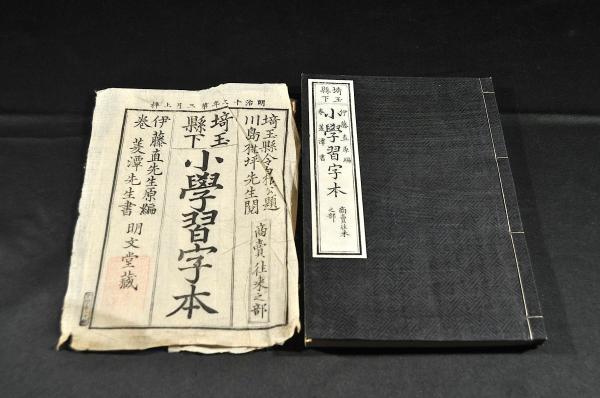 明治十二年第三月上梓
埼玉縣令白根公題
川島楳坪先生閲
商賣往来之部
埼玉
縣下
小學習字本
伊藤直先生原編
卷菱潭先生書
明文堂藏
埼玉
縣下
小學習字本
伊藤直原編
卷菱潭書
商賣往来
之部